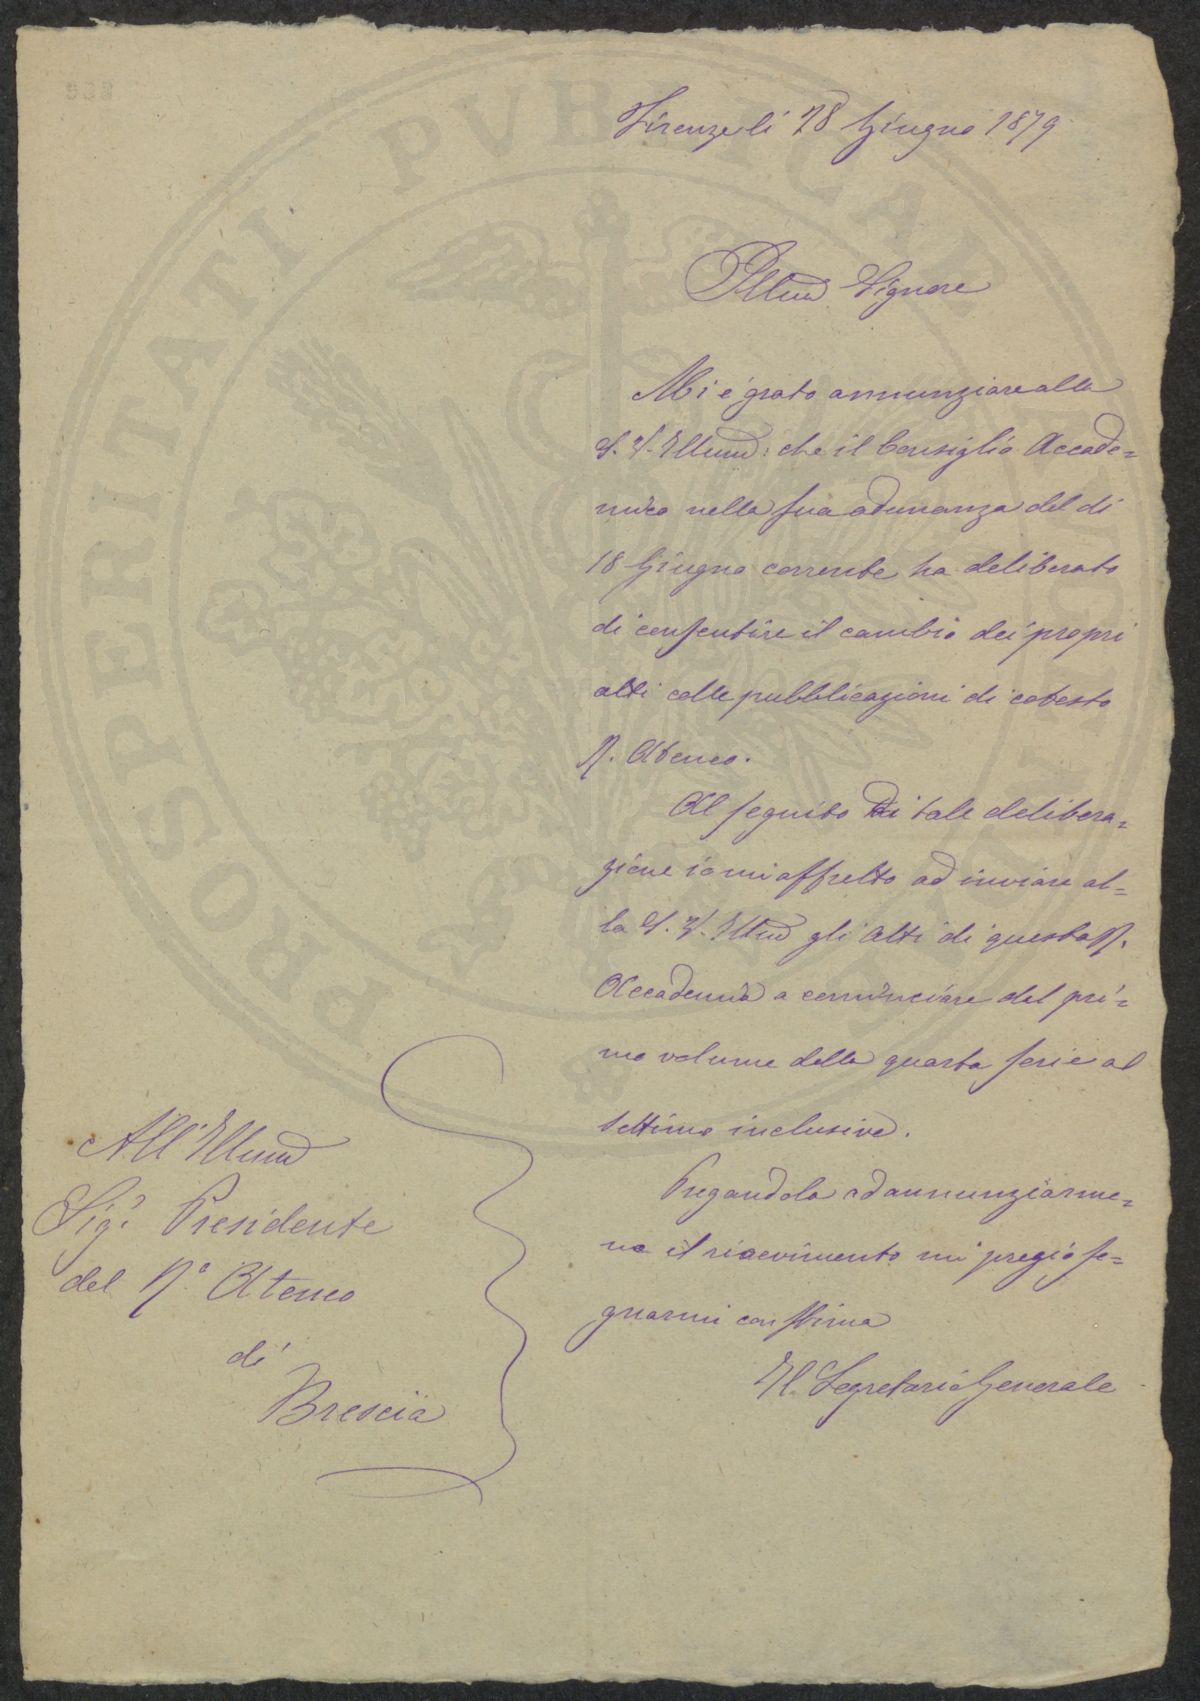 Firenze li 28 Giugno 1879
Illmo Signore
Mi è grato annunziare alla
S. V. Illma: che il Consiglio Accade=
mico nella sua adunanza del dì
18 Giugno corrente ha deliberato
di consentire il cambio dei propri
atti colle pubblicazioni di cotesto
R. Ateneo.
Al seguito di tale delibera=
zione io mi affretto ad inviare al=
la S. V. Illma gli Atti di questa R.
Accademia a cominciare dal pri=
mo volume della quarta serie al
settimo inclusive.
Pregandola ad annunziarme=
ne il ricevimento mi pregio se=
gnarmi con stima
Il Segretario Generale
All'Illmo
Sigr Presidente
del Ro Ateneo
di
Brescia
PROSPERITATI PVBLICAE